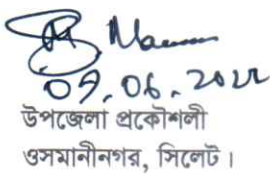 09.06.2022
উপজেলা প্রকৌশলী
ওসমানীনগর, সিলেট।